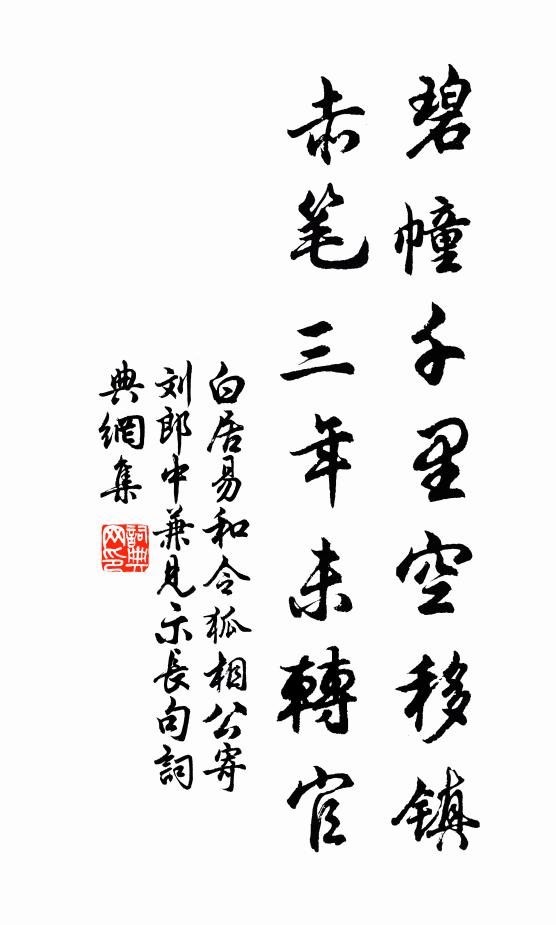 碧幢千里空移鎮
赤笔三年未轉官
白居易和令狐相公寄
刘郎中兼見示長句詞
典網集
詞典
网印